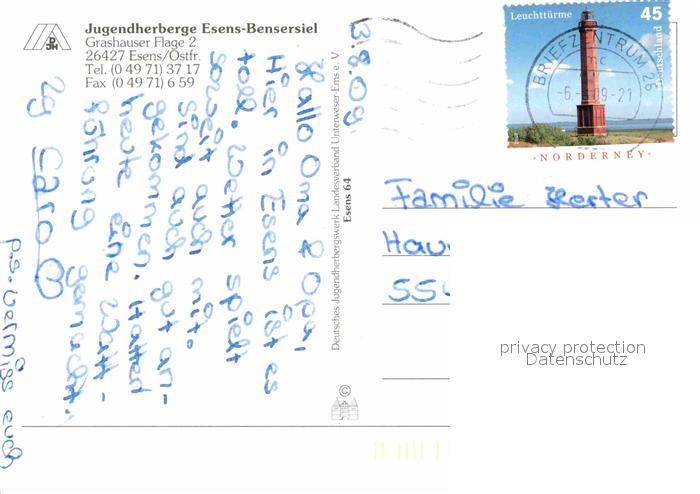 DJH
Jugendherberge Esens-Bensersiel
Grashauser Flage 2
26427 Esens/Ostfr.
Tel. (0 49 71) 37 17
Fax (0 49 71) 6 59
3.8.09.
Hallo Oma & Opa,
Hier in Esens ist es
toll. Wetter spielt
soweit auch mit.
Sind auch gut an-
gekommen. Hatten
heute eine Watt-
führung gemacht.
Lg Caro
p.s. vermiss euch
Deutsches Jugendherbergswerk Landesverband Unterweser-Ems e. V.
Esens 64
©
Leuchttürme 45
Deutschland
BRIEFZENTRUM 26
mc
-6. 09-21
· NORDERNEY ·
Familie
Hau
55
privacy protection
Datenschutz